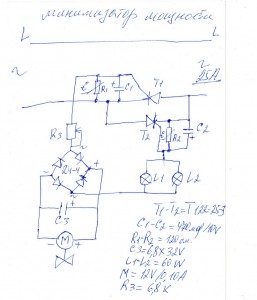 минимизатор мощности
L L
~ ~
25A
R1 C1 T1
T2 R2 C2
R3
~
21-4
- +
~
L1 L2
C3
- +
M
T1-T2=T122-25-3
C1-C2=470мф/10V
R1-R2=120 om.
C3=6,8x32V
L1-L2=60W
M=12V/0,10A
R3=6,8K